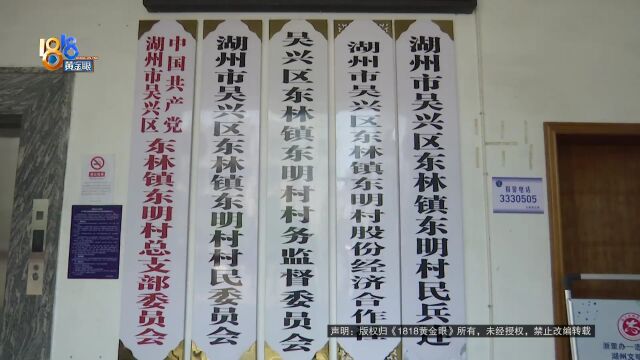 1818
黄金眼
中国共产党
湖州市吴兴区
东林镇东明村总支部委员会
湖州市吴兴区东林镇东明村村民委员会
吴兴区东林镇东明村村务监督委员会
湖州市吴兴区东林镇东明村股份经济合作社
湖州市吴兴区东林镇东明村民兵连
报警电话
3330505
声明：版权归《1818黄金眼》所有，未经授权，禁止改编转载